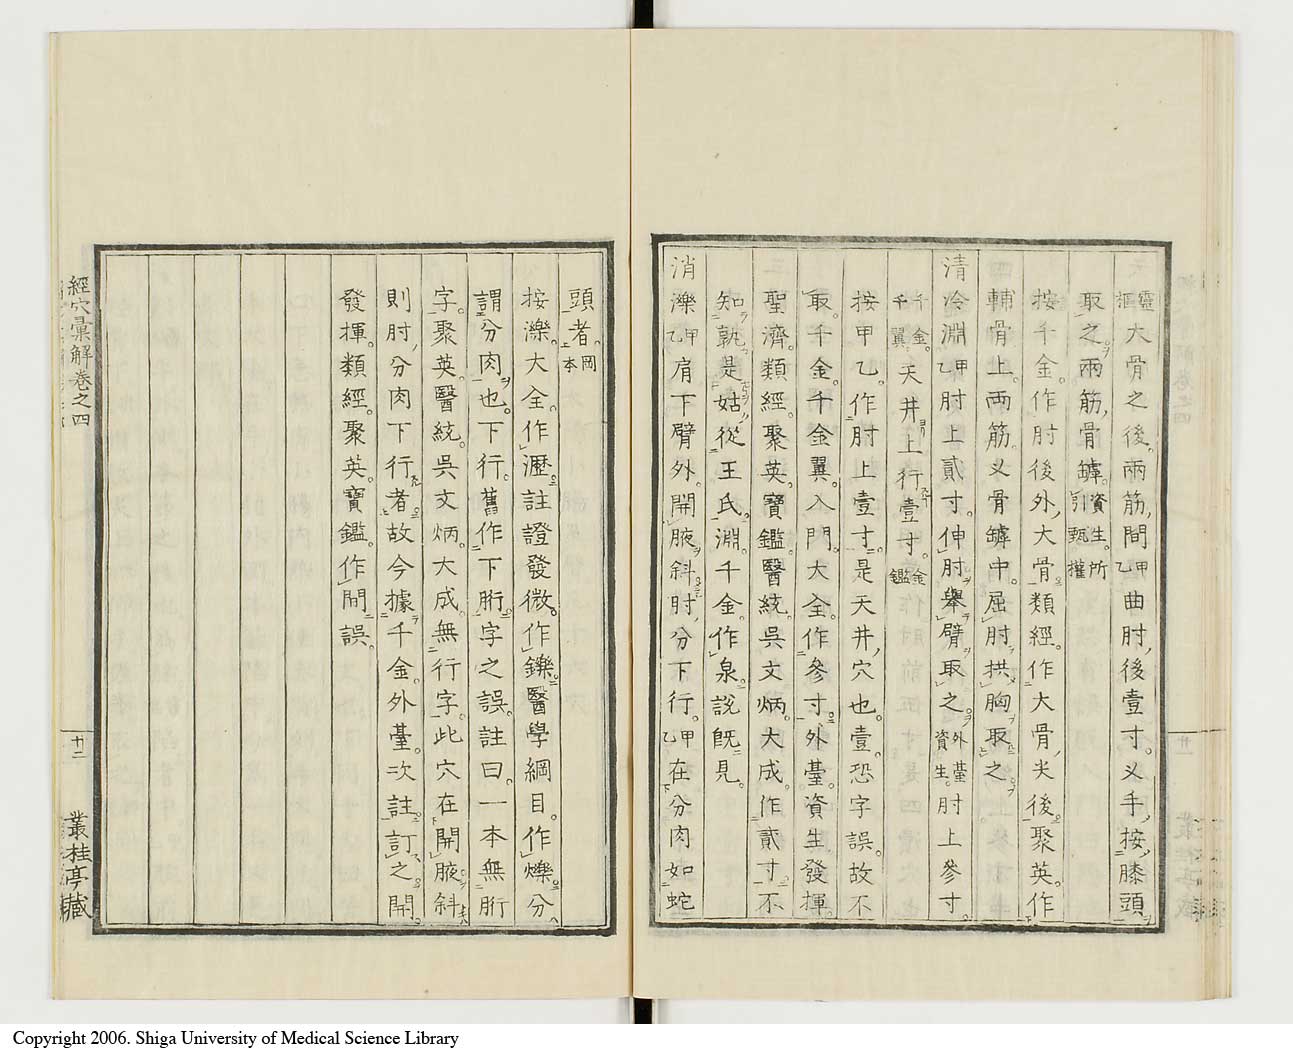 靈樞大骨之後兩筋間甲乙曲肘後壹寸义手按膝頭
取之兩筋骨罅資生所引甄權
按千金作肘後外大骨類經作大骨尖後聚英作
輔骨上兩筋义骨罅中屈肘拱胸取之
清冷淵甲乙肘上貳寸伸肘舉臂取之外臺資生肘上參寸
千金千翼天井上行壹寸金鑑
按甲乙作肘上壹寸是天井穴也壹恐字誤故不
取千金千金翼入門大全作參寸外臺資生發揮
聖濟類經聚英寶鑑醫統吳文炳大成作貳寸不
知孰是姑從王氏淵千金作泉說既見
消濼甲乙肩下臂外開腋斜肘分下行甲乙在分肉如蛇
頭者岡本
按濼大全作瀝註證發微作鑠醫學綱目作爍分
謂分肉也下行舊作下胻字之誤註曰一本無胻
字聚英醫統吳文炳大成無行字此穴在開腋斜
則肘分肉下行者故今據千金外臺次註訂之開
發揮類經聚英寶鑑作間誤
經穴彙解卷之四
十二
叢桂亭藏
Copyright 2006. Shiga University of Medical Science Library